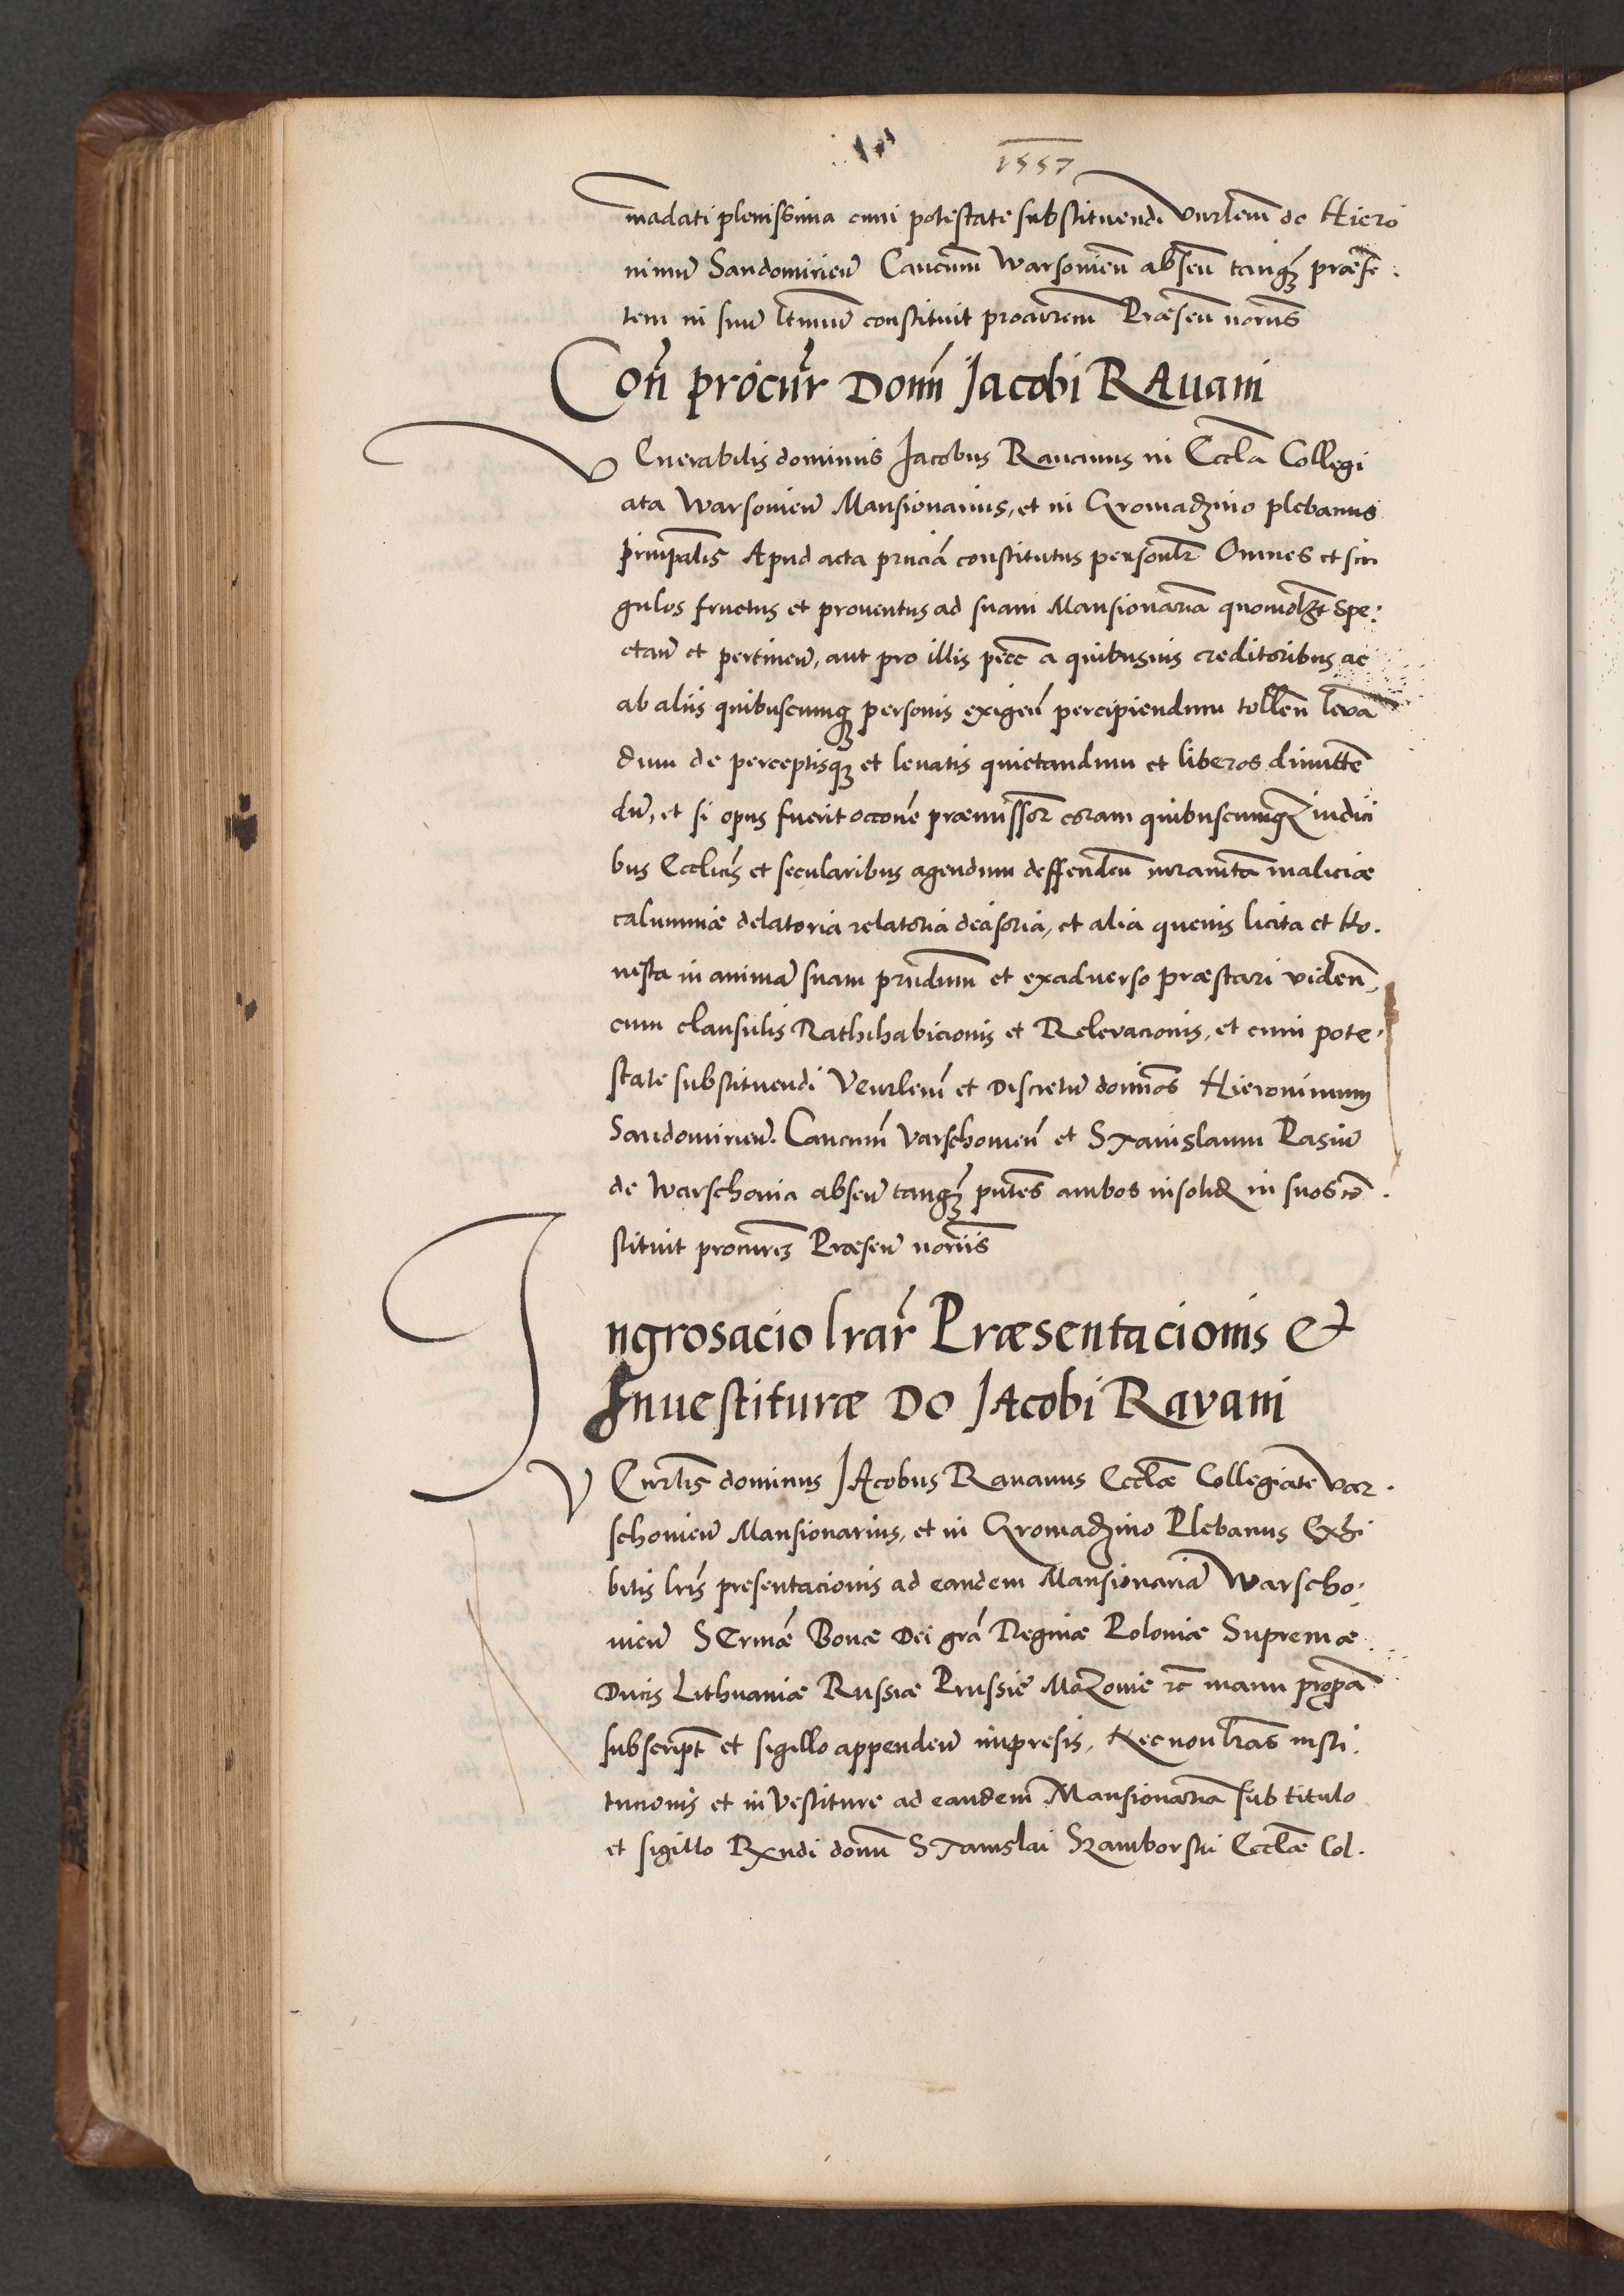 1557
madati plenissima cum potestate substituendi Vnrlem do Hiero
nimũ Sandomirieñ Canonicũ Warsovieñ abseñ tanq̃ȝ præse
tem in suũ ltimũ constituit procurem̃ Præseñ notariis
Coñ procur̃ Domñ Jacobi RAvani
VEnerabilis dominus Jacobus Ravanus in Eccla Collegi
ata Warsovieñ Mansionarius, et in Gromadzino plebanus
principalis Apud acta pnciã constitutus personlr Omnes et sin
gulos fructus et proventus ad suam Mansionariã quomodlzt Spe:
ctañ et pertineñ, aut pro illis pecc̃ a quibusvis creditoribus ac
ab aliis quibuscumqȝ personis exigeñ percipiendum tolleñ leva
dum de perceptisqȝ et levatis quietandum et liberos dimitte
dũ, et si opus fuerit occone præmissor̃ coram quibuscumqȝ iudici
bus Ecclicis et secularibus agendum deffendeñ iuramta maliciæ
calumniæ delatoria relatoria decisoria, et alia quevis licita et Ho.
nesta in animã suam prndum et exadverso præstari videñ,
cum clausulis Rathihabicionis et Relevacionis, et cum pote.
state substituendi Venrlem et Discretũ dominos Hieronimum
Sandomirieñ. Canonicũ Varschovieñ et STanislaum Rasiũ
de Warschovia abseñ tanq̃ȝ pntes ambos insolid in suos co.
stituit procures Præseñ notariis
Ingrosacio lrar̃ Præsentacionis et
Investituræ DO JAcobi Ravani
VEnrlis dominus JAcobus Ravanus Ecclæ Collegiate Var.
schovieñ Mansionarius, et in Gromadzino Plebanus Exhi
bitis lris presentacionis ad eandem Mansionariã Warscho.
vieñ SErmæ Bonæ Dei gra Reginæ Poloniæ Supremæ
Ducis Lithuaniæ Russiæ Prussie Mazovie zc manu propa
subscript et sigillo appendeñ impresis, Necnon lras insti.
tucionis et inVestiture ad eandem Mansionariã sub titulo
et sigillo Rxndi domñ STanislai Szamborski Ecclæ Col.